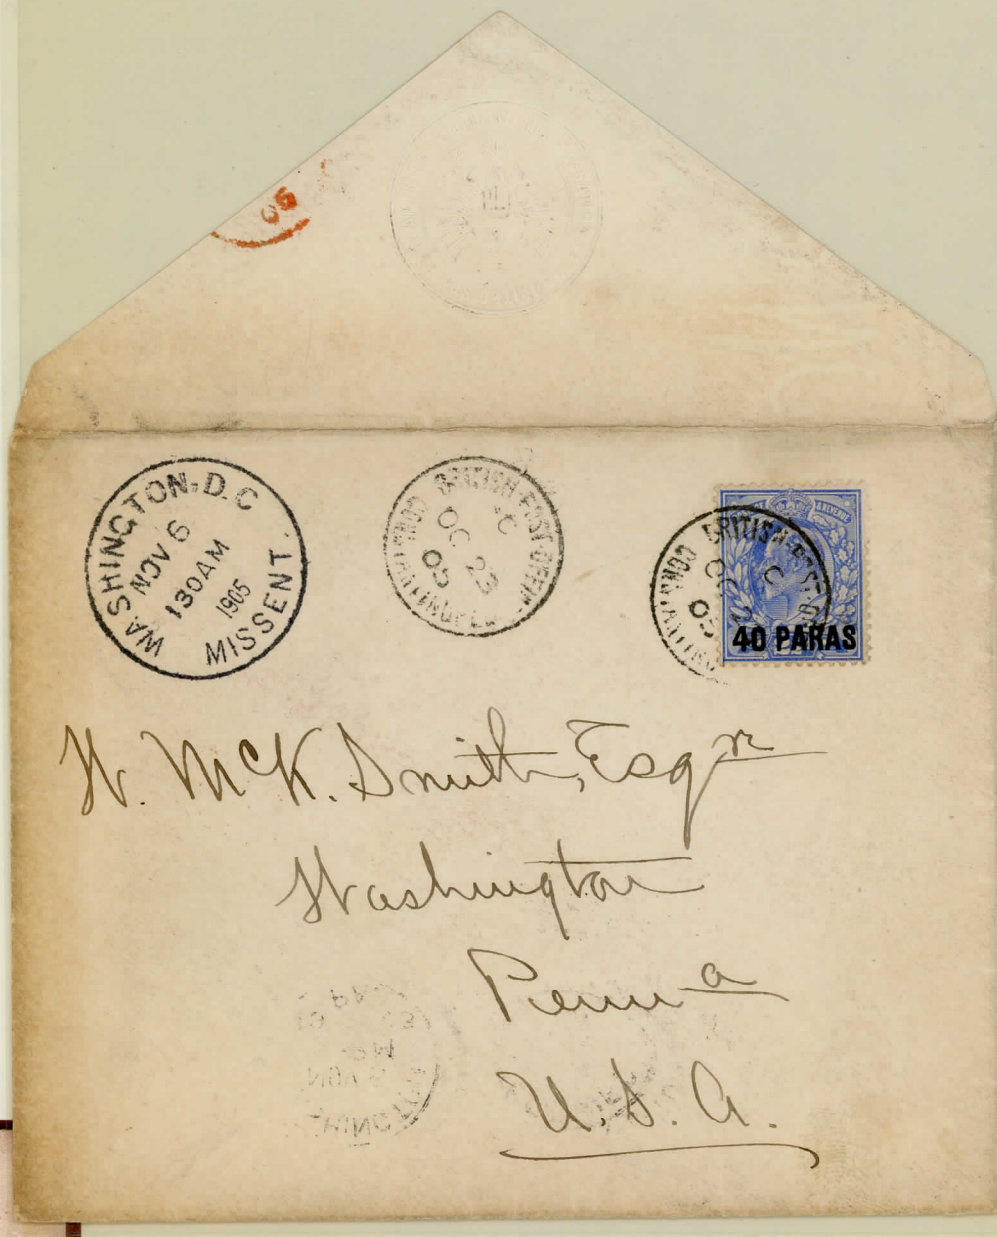 05
WASHINGTON, D.C.
NOV 6
130 AM
1905
MISSENT
BRITISH POST OFFICE
C
OC 23
05
CONSTANTINOPLE
BRITISH POST
C
OC 2
05
& REVENUE
40 PARAS
W. McK. Smith, Esqr
Washington
Penna
U.S.A.